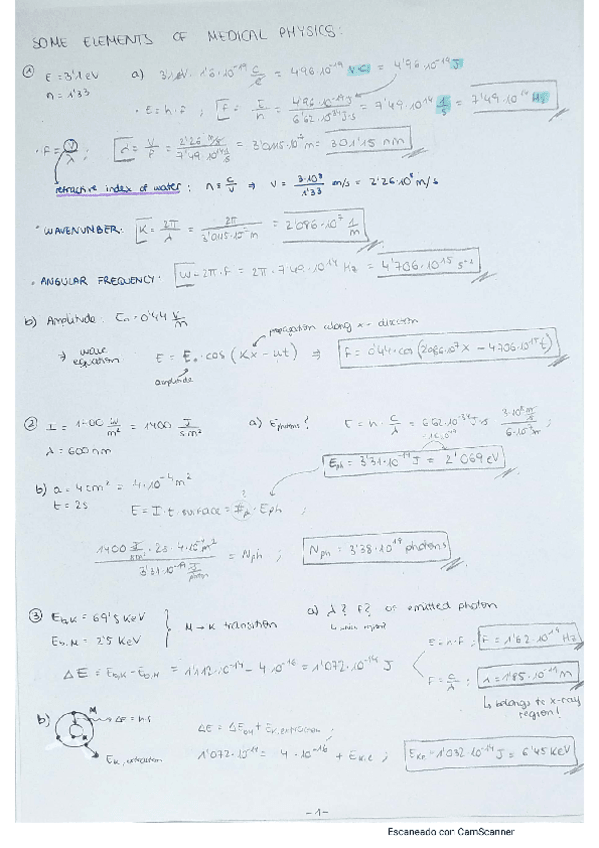 SOME ELEMENTS OF MEDICAL PHYSICS:
① E = 3'1 eV a) 3'1 eV · 1'6·10⁻¹⁹ C/e = 4'96·10⁻¹⁹ V·C = 4'96·10⁻¹⁹ J
n = 1'33
· E = h·f ; f = E/h = 4'96·10⁻¹⁹ J / 6'62·10⁻³⁴ J·s = 7'49·10¹⁴ 1/s = 7'49·10¹⁴ Hz
· F = V/λ ; λ = V/F = 2'26·10⁸ m/s / 7'49·10¹⁴ 1/s = 3'0115·10⁻⁷ m = 301'15 nm
refractive index of water: n = c/v ⇒ v = 3·10⁸/1'33 m/s = 2'26·10⁸ m/s
· WAVENUMBER: K = 2π/λ = 2π / 3'0115·10⁻⁷ m = 2'086·10⁷ 1/m
· ANGULAR FREQUENCY: ω = 2π·F = 2π · 7'49·10¹⁴ Hz = 4'706·10¹⁵ s⁻¹
b) Amplitude: = 0'44 V/m
propagation along x-direction
⇒ wave equation E = E₀ · cos (Kx − ωt) ⇒ E = 0'44·cos(2'086·10⁷ x − 4'706·10¹⁵ t)
amplitude
② I = 1400 W/m² = 1400 J/s m² a) E photons? E = h · c/λ = 6'62·10⁻³⁴ J·s · 3·10⁸ m/s / 6·10⁻⁷ m ;
λ = 600 nm
Eph = 3'31·10⁻¹⁹ J = 2'069 eV
b) a = 4 cm² = 4·10⁻⁴ m²
t = 2s E = I · t · surface = · Eph ;
1400 J/s m² · 2s · 4·10⁻⁴ m² / 3'31·10⁻¹⁹ J/photon = Nph ; Nph = 3'38·10¹⁸ photons
③ Eb,K = 69'5 KeV a) λ? f? of emitted photon
Eb,M = 2'5 KeV M → K transition
E = h·F ; F = 1'62·10¹⁹ Hz
ΔE = Eb,K − Eb,M = 1'112·10⁻¹⁴ − 4·10⁻¹⁶ = 1'072·10⁻¹⁴ J
F = c/λ ; λ = 1'85·10⁻¹¹ m
↳ belongs to x-ray region!
b) M ΔE = h·f
ΔE = + EK, extraction ;
EK, extraction
1'072·10⁻¹⁴ = 4·10⁻¹⁶ + EK,e ; = 1'032·10⁻¹⁴ J = 6'45 KeV
-1-
Escaneado con CamScanner